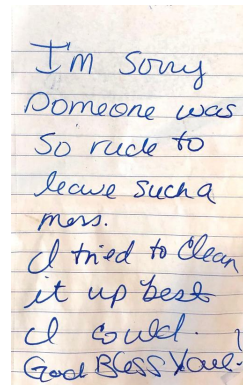 I'm Sorry
Someone was
So rude to
leave such a
mess.
I tried to Clean
it up best
I could.
God Bless You.